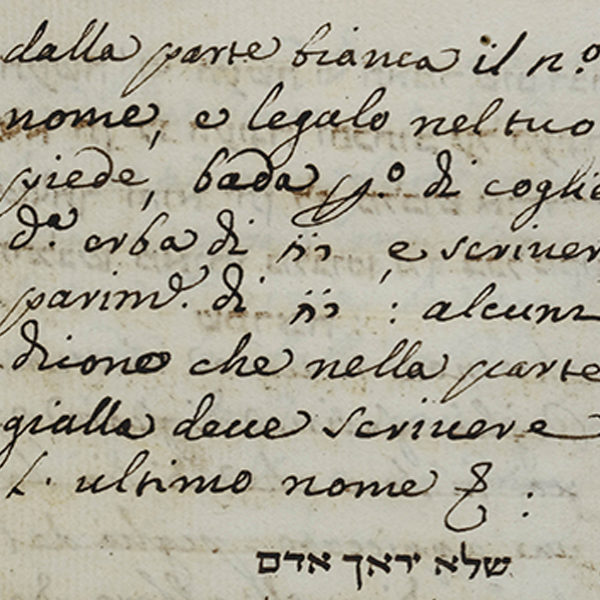 dalla parte bianca il n.º
nome, e legalo nel tuo
piede, bada pº di coglie
d.ª erba di ״נ , e scriver
parim.ᵉ di ״נ : alcuni
dicono che nella parte
gialla deve scrivere
l. ultimo nome
שלא יראך אדם